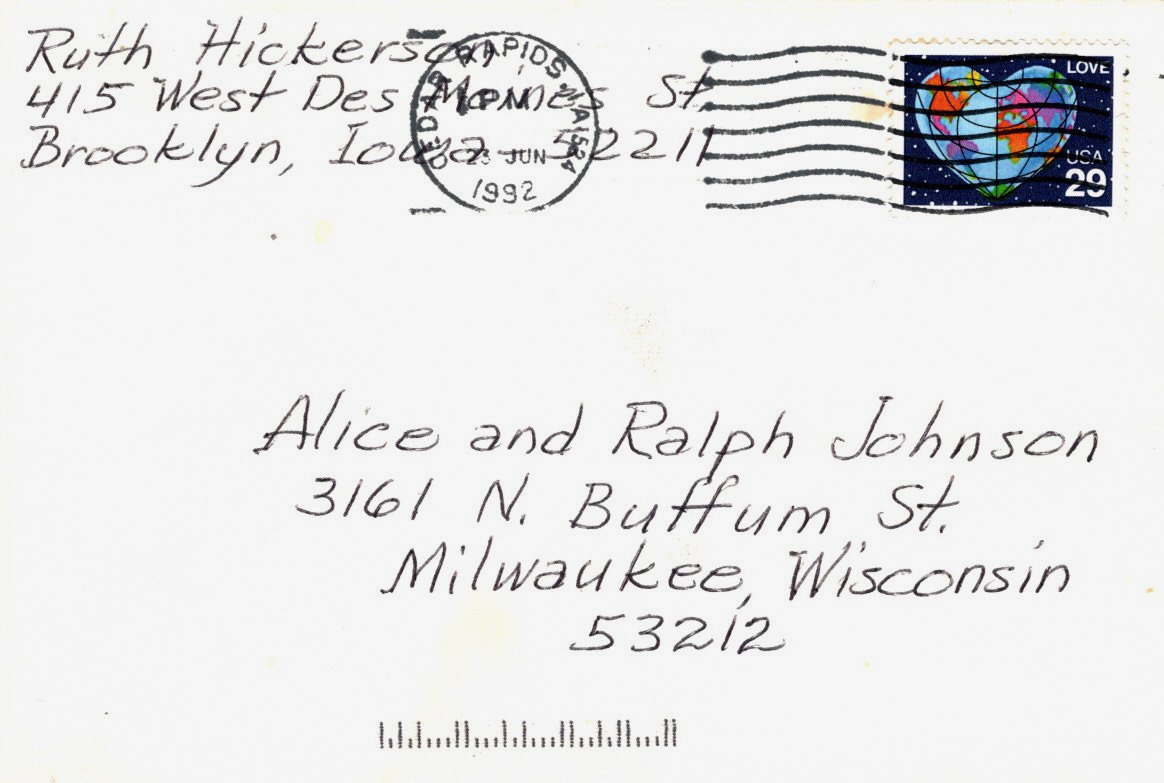 Ruth Hickerson
415 West Des Moines St.
Brooklyn, Iowa 52211
CEDAR RAPIDS, IA 524
PM
23 JUN
1992
LOVE
USA
29
Alice and Ralph Johnson
3161 N. Buffum St.
Milwaukee, Wisconsin
53212